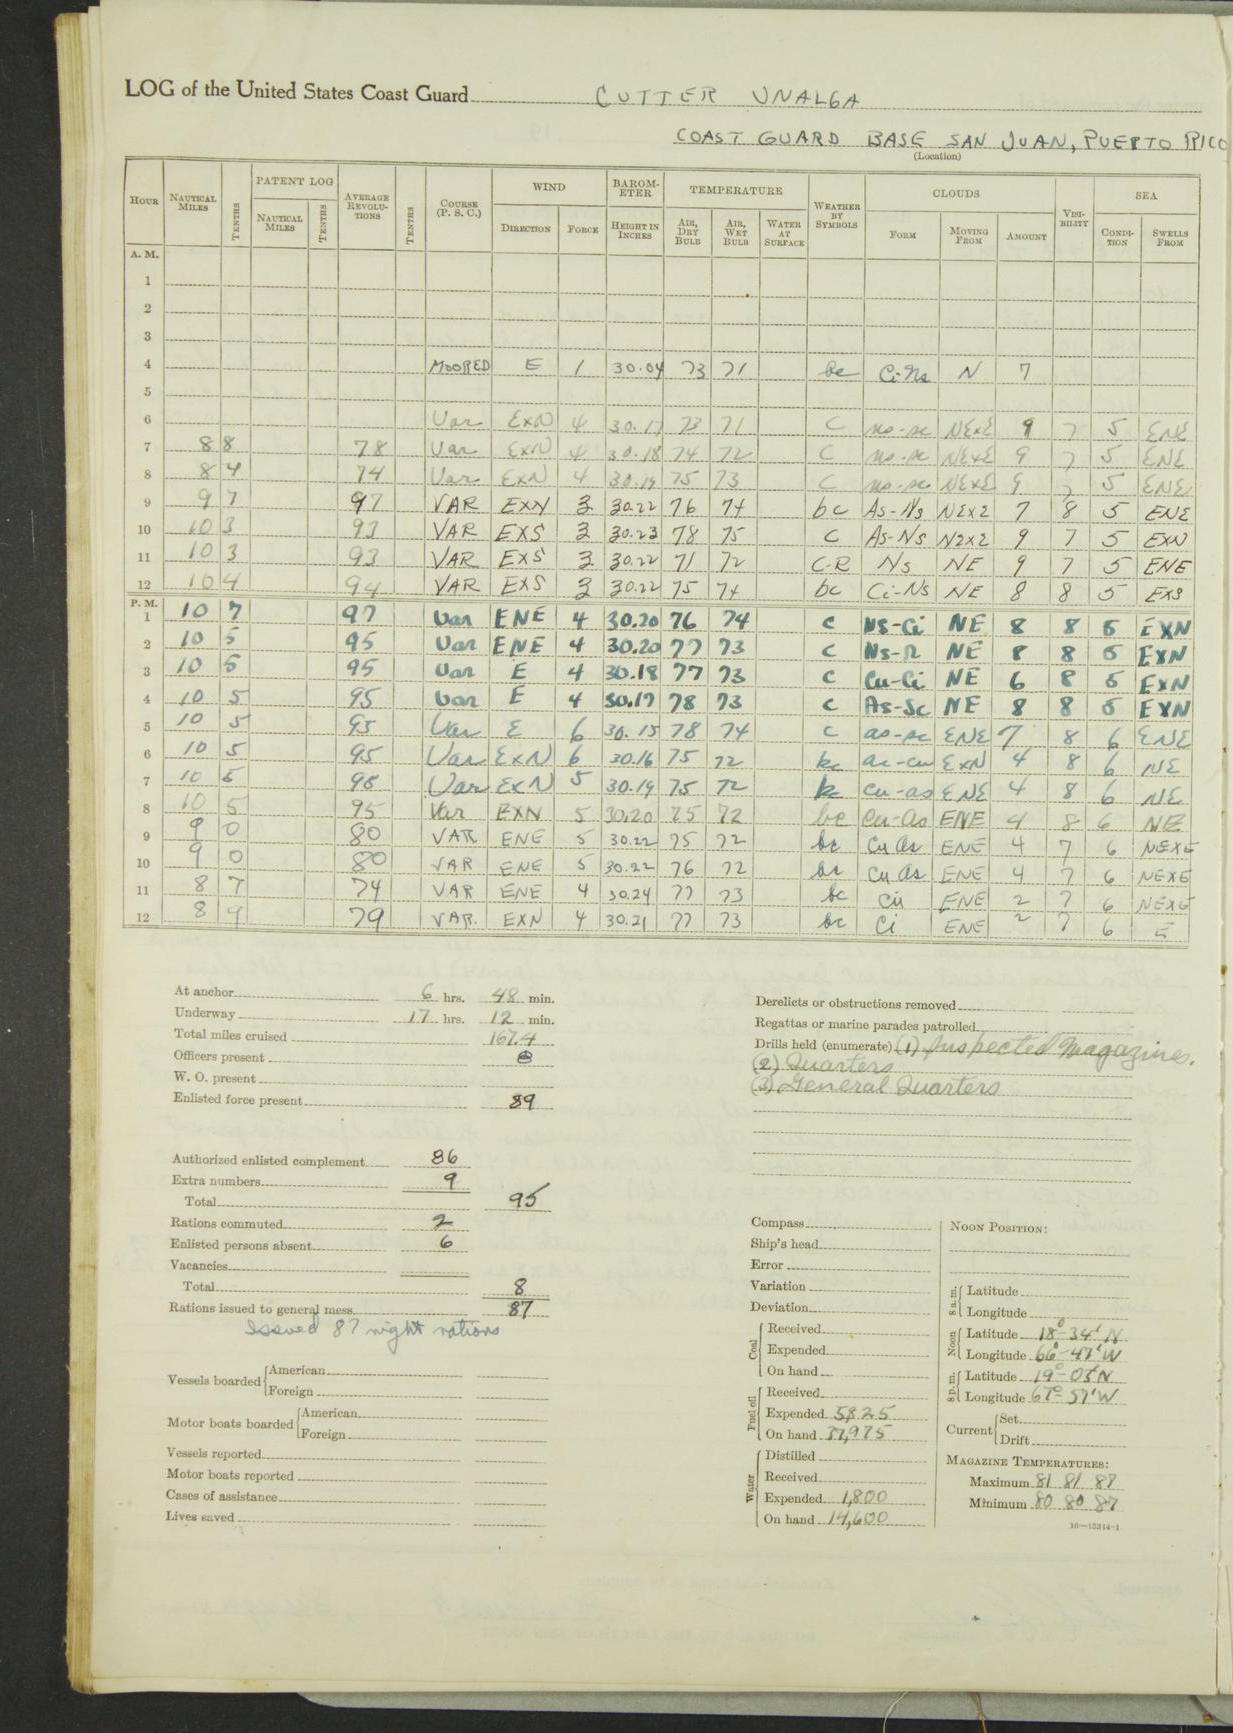 LOG of the United States Coast Guard CUTTER UNALGA
COAST GUARD BASE SAN JUAN, PUERTO RICO
(Location)
HOUR NAUTICAL MILES TENTHS PATENT LOG NAUTICAL MILES TENTHS AVERAGE REVOLU-TIONS TENTHS COURSE (P. S. C.) WIND DIRECTION FORCE BAROM-ETER HEIGHT IN INCHES TEMPERATURE AIR, DRY BULB AIR, WET BULB WATER AT SURFACE WEATHER BY SYMBOLS CLOUDS FORM MOVING FROM AMOUNT VISI-BILITY SEA CONDI-TION SWELLS FROM
A. M.
1
2
3
4 MOORED E 1 30.04 73 71 bc Ci-Ns N 7
5
6 Var ExN 4 30.17 73 71 C ns-sc NExE 9 7 5 ENE
7 8 8 78 Var ExN 4 30.18 74 72 C ns-sc NExE 9 7 5 ENE
8 8 4 74 Var ExN 4 30.19 75 73 C ns-sc NExE 9 7 5 ENE
9 9 7 97 VAR EXN 3 30.22 76 74 bc As-Ns NExE 7 8 5 ENE
10 10 3 93 VAR EXS 3 30.23 78 75 C As-Ns NExE 9 7 5 EXN
11 10 3 93 VAR EXS 3 30.22 71 72 C-R Ns NE 9 7 5 ENE
12 10 4 94 VAR EXS 3 30.22 75 74 bc Ci-Ns NE 8 8 5 EXS
P. M.
1 10 7 97 Var ENE 4 30.20 76 74 c Ns-Ci NE 8 8 5 EXN
2 10 5 95 Var ENE 4 30.20 77 73 c NE 8 8 5 EXN
3 10 5 95 Var E 4 30.18 77 73 c Cu-Ci NE 6 8 5 EXN
4 10 5 95 Var E 4 30.17 78 73 c As-Sc NE 8 8 5 EXN
5 10 5 95 Var E 6 30.15 78 74 c as-sc ENE 7 8 6 ENE
6 10 5 95 Var ExN 6 30.16 75 72 bc ac-cu ExN 4 8 6 NE
7 10 5 95 Var ExN 5 30.19 75 72 bc cu-as ENE 4 8 6 NE
8 10 5 95 Var EXN 5 30.20 75 72 bc Cu-As ENE 4 8 6 NE
9 9 0 80 VAR ENE 5 30.22 75 72 bc Cu As ENE 4 7 6 NEXE
10 9 0 80 VAR ENE 5 30.22 76 72 bc Cu As ENE 4 7 6 NEXE
11 8 7 74 VAR ENE 4 30.24 77 73 bc Cu ENE 2 7 6 NEXE
12 8 9 79 VAR. EXN 4 30.21 77 73 bc Ci ENE 2 7 6 E
At anchor 6 hrs. 48 min.
Underway 17 hrs. 12 min.
Total miles cruised 167.4
Officers present
W. O. present
Enlisted force present 89
Authorized enlisted complement 86
Extra numbers 9
Total 95
Rations commuted 2
Enlisted persons absent 6
Vacancies
Total 8
Rations issued to general mess 87
Issued 87 night rations
Vessels boarded American
Foreign
Motor boats boarded American
Foreign
Vessels reported
Motor boats reported
Cases of assistance
Lives saved
Derelicts or obstructions removed
Regattas or marine parades patrolled
Drills held (enumerate) (1) Inspected Magazines.
(2) Quarters
(3) General Quarters
Compass
Ship's head
Error
Variation
Deviation
Coal Received
Expended
On hand
Fuel oil Received
Expended 5,825
On hand 37,975
Water Distilled
Received
Expended 1,800
On hand 14,600
NOON POSITION:
8 a.m. Latitude
Longitude
Noon Latitude 18°-34' N
Longitude 66°-47' W
8 p.m. Latitude 19°-03' N
Longitude 67°-57' W
Current Set
Drift
MAGAZINE TEMPERATURES:
Maximum 81 81 87
Minimum 80 80 87
16—13214-1